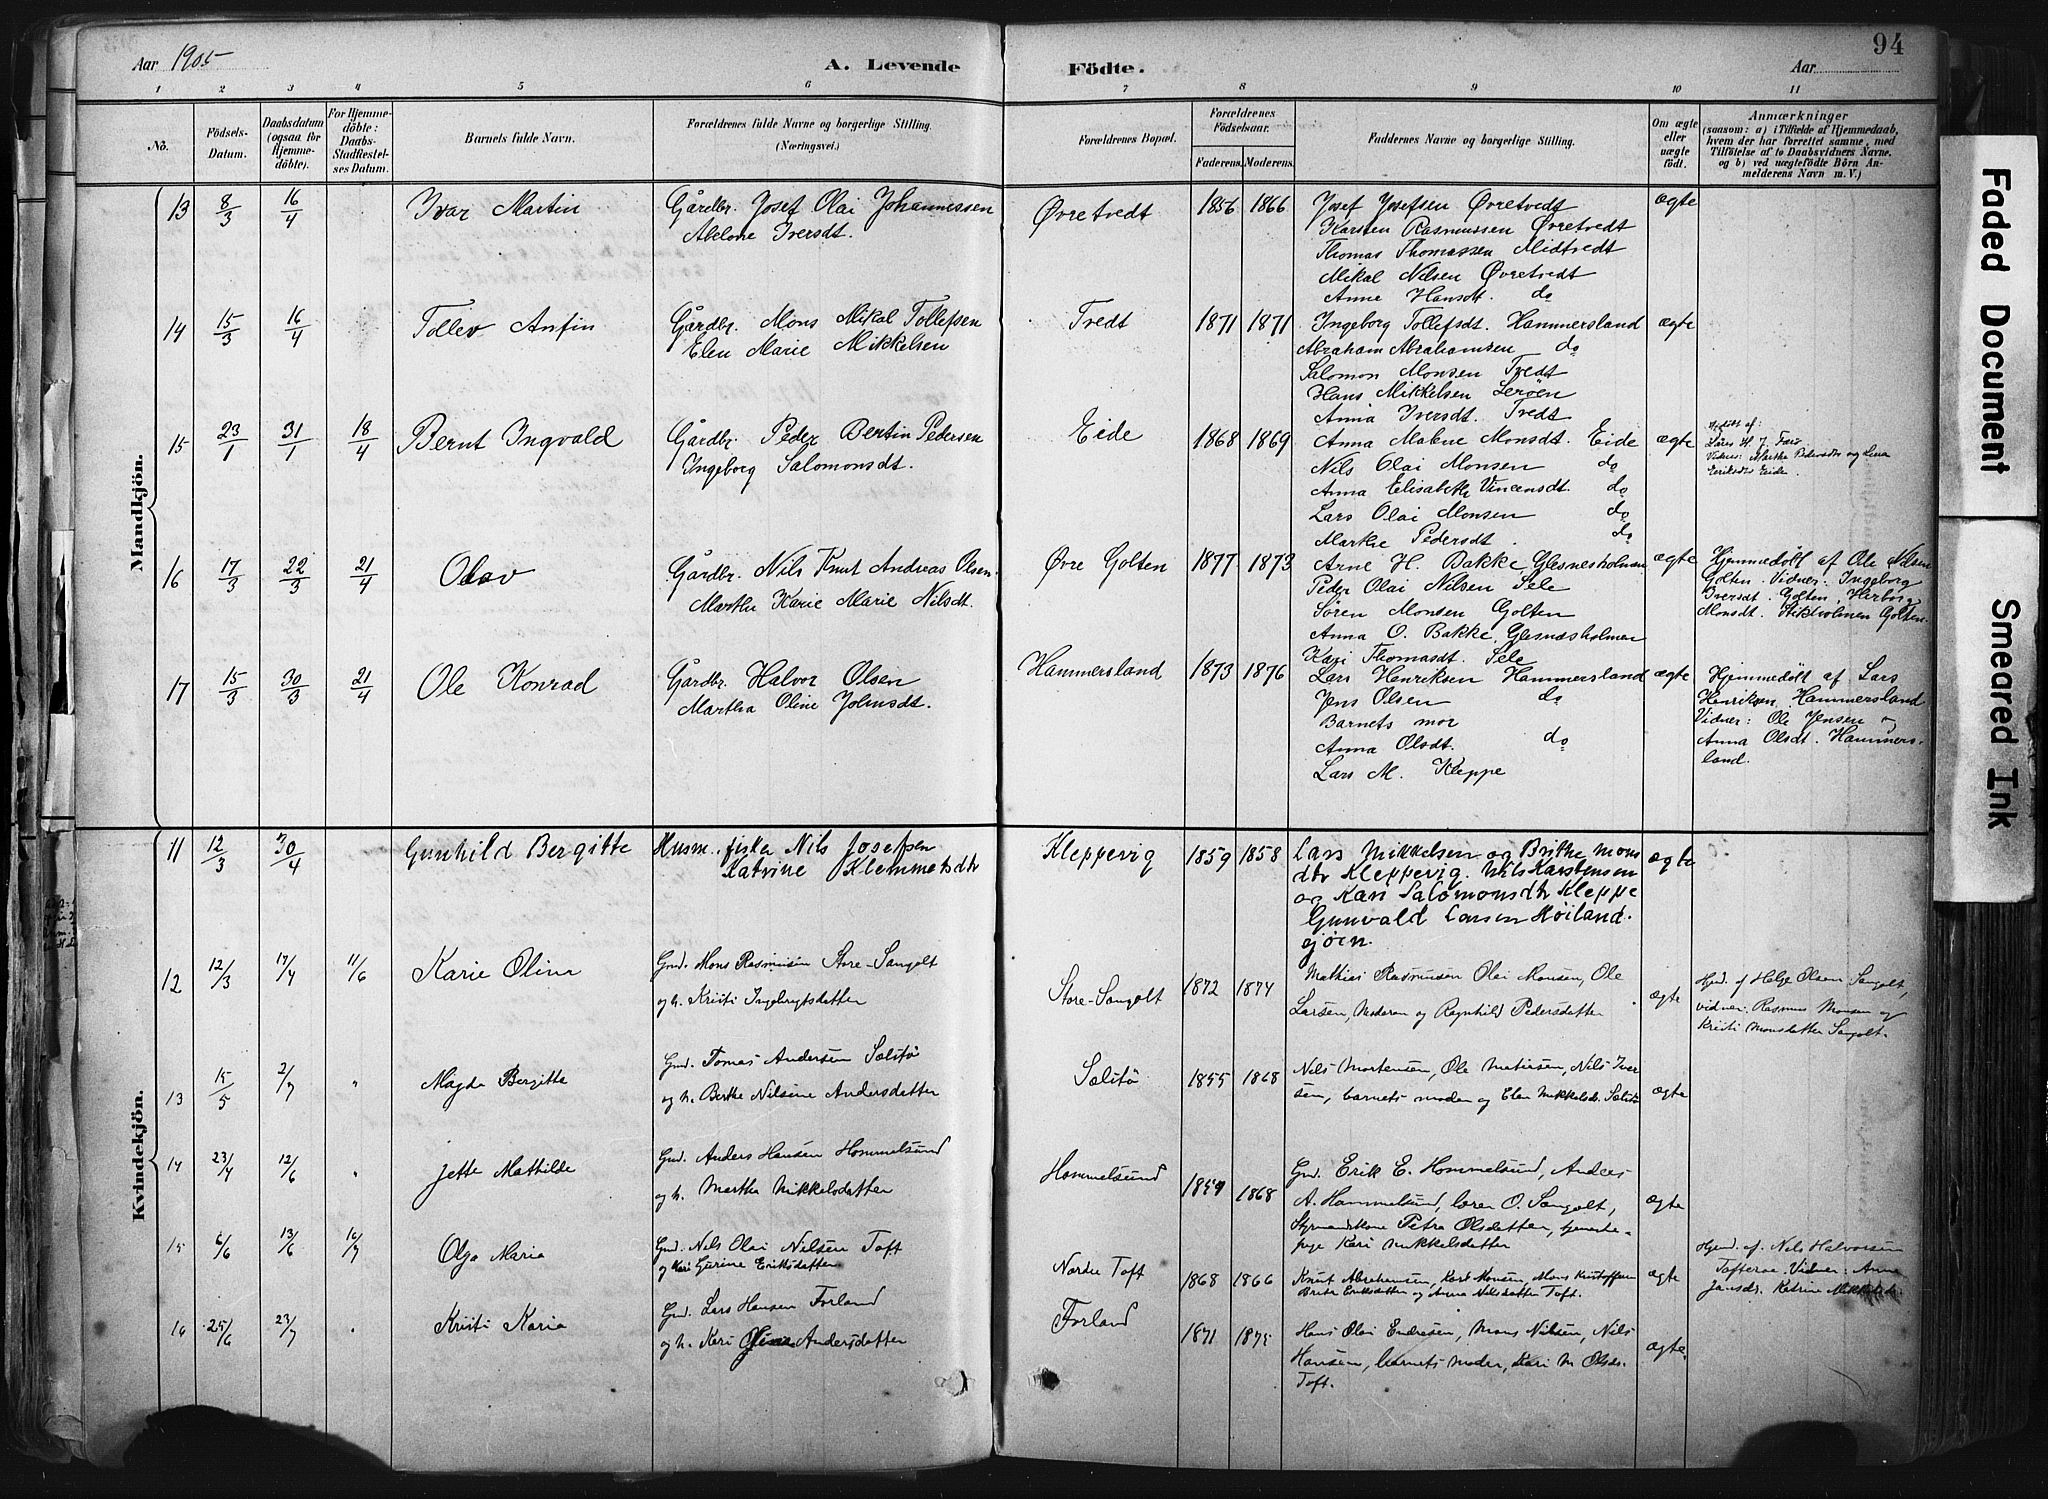 94
Aar 1905
A. Levende
Födte.
Aar
1 2 3 4 5 6 7 8 9 10 11
No.
Födsels-Datum.
Daabsdatum (ogsaa for Hjemme-döbte).
For Hjemme-döbte: Daabs-Stadfæstel-ses Datum.
Barnets fulde Navn.
Forældrenes fulde Navne og borgerlige Stilling.
(Næringsvei.)
Forældrenes Bopæl.
Forældrenes Födselsaar.
Faderens. Moderens.
Faddernes Navne og borgerlige Stilling.
Om ægte eller uægte födt.
Anmærkninger
(saasom: a) i Tilfælde af Hjemmedaab,
hvem der har forrettet samme, med
Tilföielse af to Daabsvidners Navne,
og b) ved uægtefödte Börn An-
melderens Navn m. V.)
Mandkjön.
13 8/3 16/4 Ivar Martin Gårdbr. Josef Olai Johannessen Øvretvedt 1856 1866 Josef Josefsen Øvretvedt ægte
Abelone Iversdt. Karsten Rasmussen Øvretvedt
Thomas Thomassen Midtvedt
Mikal Nilsen Øvretvedt
Anne Hansdt. do
14 15/3 16/4 Tollev Anfin Gårdbr. Mons Mikal Tollefsen Tredt 1871 1871 Ingeborg Tollefsdt. Hammersland ægte
Elen Marie Mikkelsen Abraham Abrahamsen do
Salomon Monsen Tredt
Hans Mikkelsen Lerøen
Anna Iversdt. Tredt
15 23/1 31/1 18/4 Bernt Ingvald Gårdbr. Peder Bertin Pedersen Eide 1868 1869 Anna Malene Monsdt. Eide ægte
Ingeborg Salomonsdt. Nils Olai Monsen do
Lars H. J.
Vidner: Marthe Pedersdt og Lina
Eriksdt Eide.
Anna Elisabeth Vincensdt. do
Lars Olai Monsen do
Marthe Pedersdt. do
16 17/3 22/3 21/4 Olav Gårdbr. Nils Knut Andreas Olsen Øvre Golten 1877 1873 Arne H. Bakke, Glesnesholmen ægte Hjemmedøbt af Ole Nilsen
Marthe Karie Marie Nilsdt. Peder Olai Nilsen Sele Golten. Vidner: Ingeborg
Søren Monsen Golten Iversdt. Golten, Herborg
Anna O. Bakke, Glesnæsholmen Monsdt. Stikholmen Golten.
Kari Thomasdt. Sele
17 15/3 30/3 21/4 Ole Konrad Gårdbr. Halvor Olsen Hammersland 1873 1876 Lars Henriksen Hammersland ægte Hjemmedøbt af Lars
Martha Oline Johnsdt. Jens Olsen do Henriksen, Hammersland
Barnets mor Vidner: Ole Jensen og
Anna Olsdt. do Anna Olsdt. Hammers-
Lars M. Kleppe land.
Kvindekjön.
11 12/3 30/4 Gunhild Bergitte Husm. fisker Nils Josefsen Kleppevig 1859 1858 Lars Mikkelsen og Brithe Mons ægte
Katrine Klemmetsdtr dtr Kleppevig. Nils Karstensen
og Kari Salomonsdtr Kleppe
Gunvald Larsen Høiland.
gjøen.
12 12/3 17/4 11/6 Karie Oline Gmd. Mons Rasmusen Store-Sangolt Store-Sangolt 1872 1874 Mathias Rasmusen Olai Monsen, Ole ægte Hjmd. af Helge Olsen Sangolt,
og h. Kristi Ingebrigtsdatter Larsen, Moderen og Ragnhild Pedersdatter vidner: Rasmus Monsen og
Kristi Monsdatter Sangolt.
13 15/5 2/7 " Magda Bergitte Gmd. Tomas Andersen Solitø Solitø 1855 1868 Nils Mortensen, Ole Matiesen, Nils Iver ægte
og h. Berthe Nilsine Andersdatter sen, barnets moder og Elen Mikkelsdr. Solitø
14 23/4 12/6 " Jette Mathilde Gmd. Anders Hansen Hommelsund Hommelsund 1859 1868 Gmd. Erik E. Hommelsund, Anders ægte
og h. Martha Mikkelsdatter A. Hommelsund, Søren O. Sangolt,
Styrmandskone Petra Olsdatter, tjeneste-
pige Kari Mikkelsdatter
15 6/6 13/6 16/7 Olga Maria Gmd. Nils Olai Nilsen Toft Nordre Toft 1868 1866 Knut Abrahamsen, Karl Monsen, Mons Kristoffersen ægte Hjmd. af. Nils Halvorsen
og Kari Gurine Eriksdatter Brita Eriksdatter og Anna Nilsdatter Toft. Tofterøe. Vidner: Anna
Jansdr. Katrine Mikkelsdr.
16 25/6 23/7 " Kristi Karia Gmd. Lars Hansen Forland Forland 1871 1875 Hans Olai Endresen, Mons Nilsen, Nils ægte.
og h. Kari Oline Andersdatter Hansen, barnets Moder, Kari M Olsdr.
Toft.
Faded Document
Smeared Ink